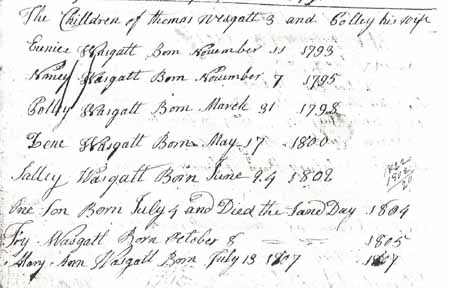 The Children of thomas Wasgatt 3 and Polley his wife
Eunice Wasgatt Born November 11 1793
Nancy Wasgatt Born November 7 1795
Polley Wasgatt Born March 31 1798
Wasgatt Born May 17 1800
Salley Wasgatt Born June 24 1802
One Son Born July 4 and Died the Same Day 1804
Wasgatt Born October 8 1805
Mary Ann Wasgatt Born July 13 1807 1807